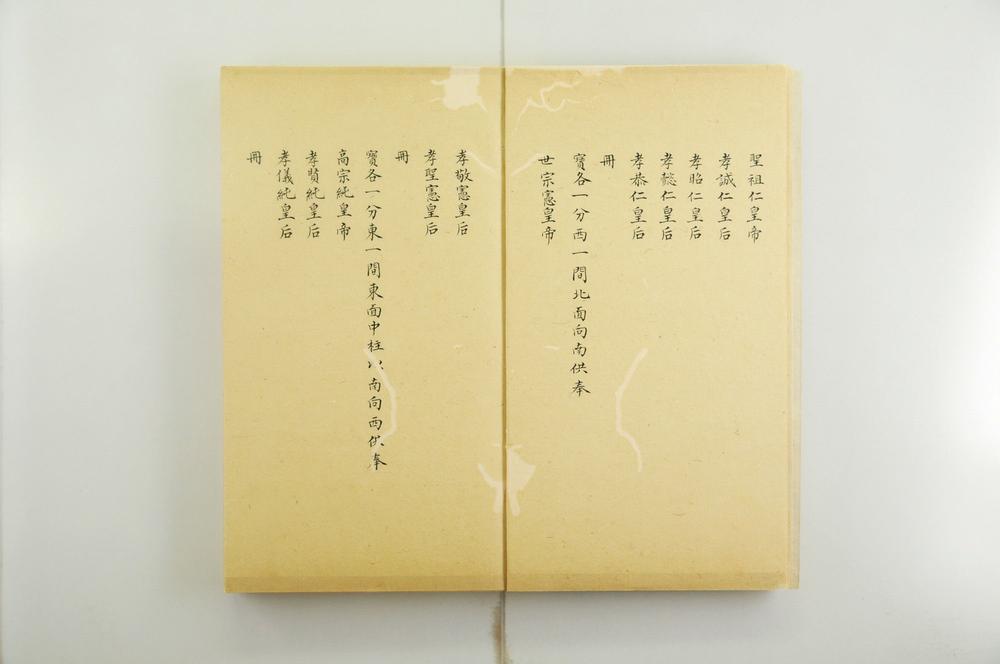 聖祖仁皇帝
孝誠仁皇后
孝昭仁皇后
孝懿仁皇后
孝恭仁皇后
冊
寶各一分西一間北面向南供奉
世宗憲皇帝
孝敬憲皇后
孝聖憲皇后
冊
寶各一分東一間東面中柱以南向西供奉
高宗純皇帝
孝賢純皇后
孝儀純皇后
冊